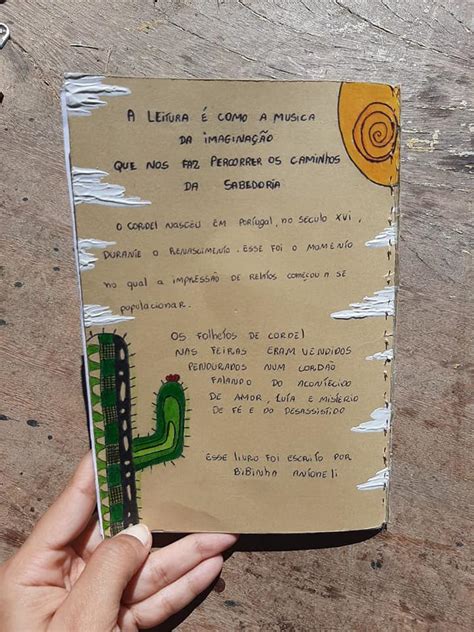 A LEITURA É COMO A MUSICA
DA IMAGINAÇÃO
QUE NOS FAZ PERCORRER OS CAMINHOS
DA SABEDORIA
O CORDEL NASCEU EM PORTUGAL, NO SÉCULO XVI,
DURANTE O RENASCIMENTO. ESSE FOI O MOMENTO
NO QUAL A IMPRESSÃO DE RELATOS COMEÇOU A SE
POPULACIONAR.
OS FOLHETOS DE CORDEL
NAS FEIRAS ERAM VENDIDOS
PENDURADOS NUM CORDÃO
FALANDO DO ACONTECIDO
DE AMOR, LUTA E MISTÉRIO
DE FÉ E DO DESASSISTIDO
ESSE LIVRO FOI ESCRITO POR
BIBINHA